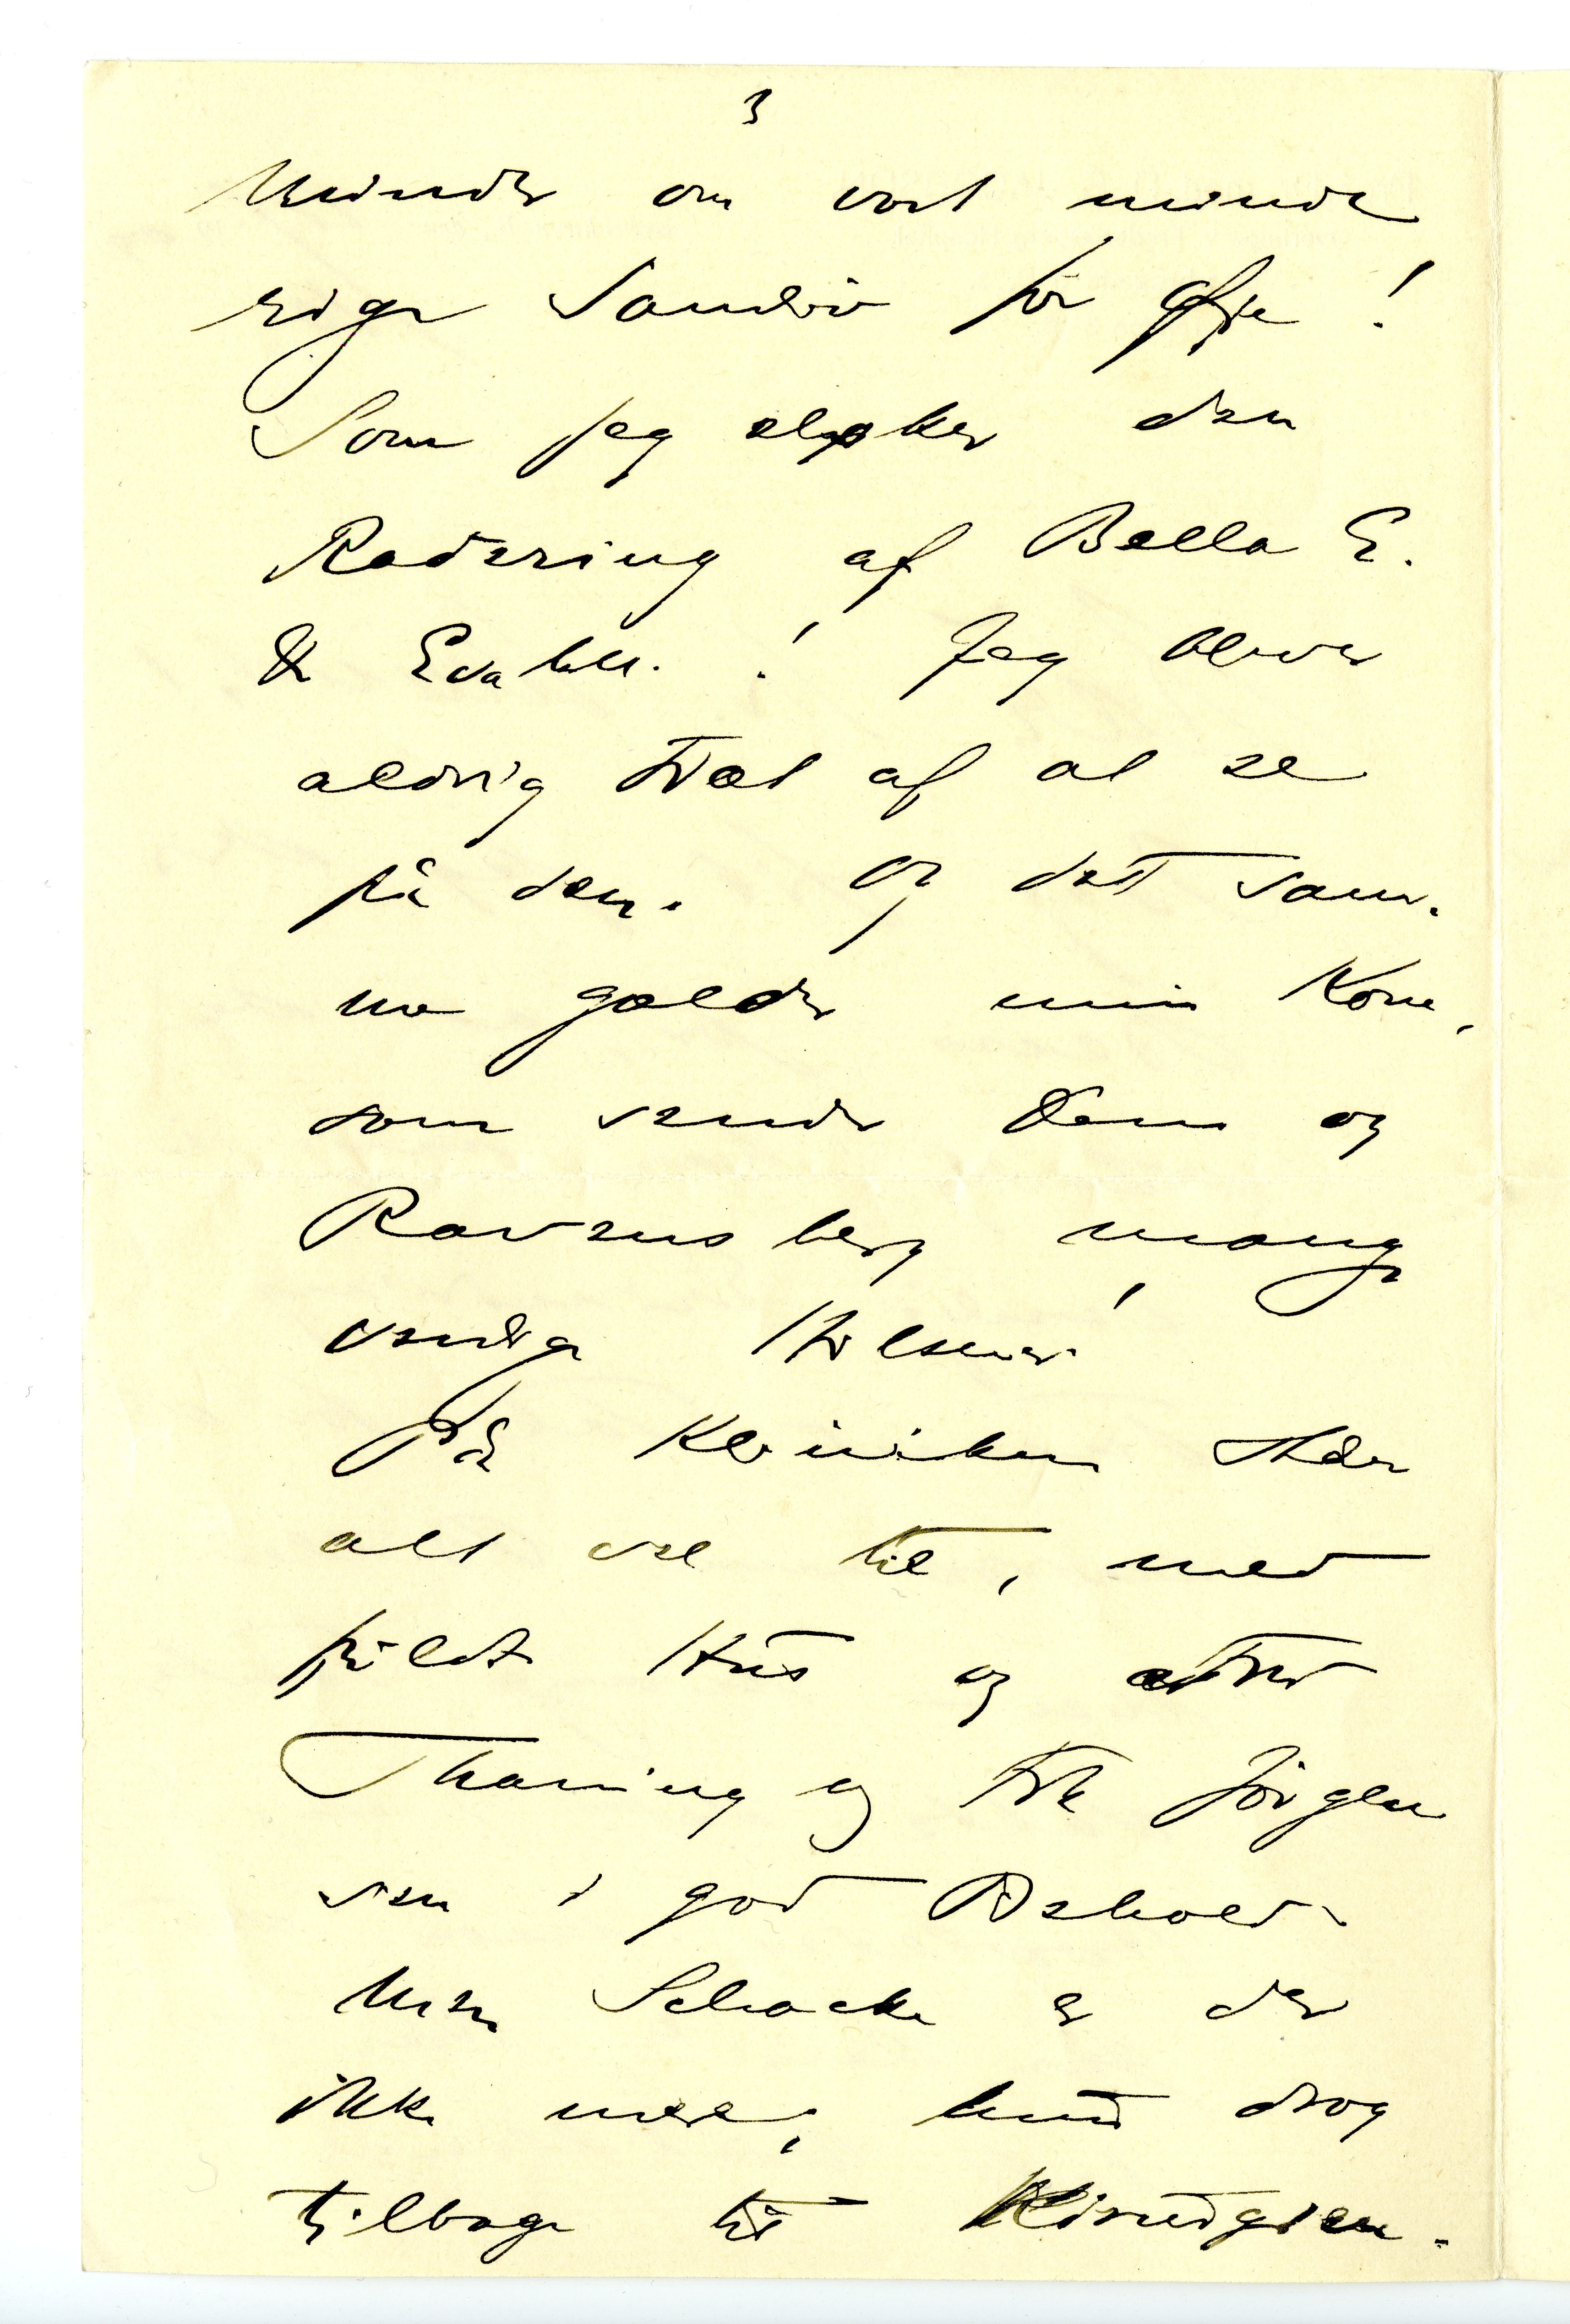 3
Minder om vort minde
rige Samliv før Afse!
Som jeg elsker den
Radering af Bella E.
& Eva M. ! Jeg bliver
aldrig træt af at se
på den. Og det sam-
me gælder min Kone,
som sender Dem og
Ravensberg mange
venlige Hilsener!
På Kliniken står
alt vel til, med
fuldt Hus og
Thaning og Frk Jörgen
sen i god Behold.
Men Schacke er der
ikke mere, hun drog
tilbage til Kirurgien.